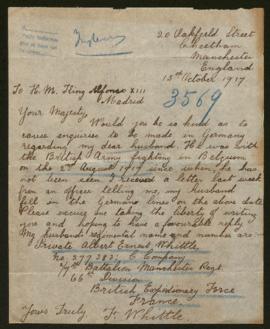 20 Oakfield Street
Cheetham
Manchester
England
15th October 1917
To H. M. King Alfonso XIII
Madrid
3569
Your Majesty
Would you be so kind as to
cause enquiries to be made in Germany
regarding my dear husband. He was with
the British Army fighting in Belgium
on the August 1917 since when, he has
not been heard received a letter last week
from an officer telling me, my husband
fell in the German lines on the above date
Please excuse me taking the liberty of writing
you and hoping to have a favourable reply
My husband regimental name and number are:-
Private Albert Ernest Whittle
No. 377 C Company
Battalion Manchester Regt.
66th Division
British Expeditionary Force
France
Yours Truly F. Whittle